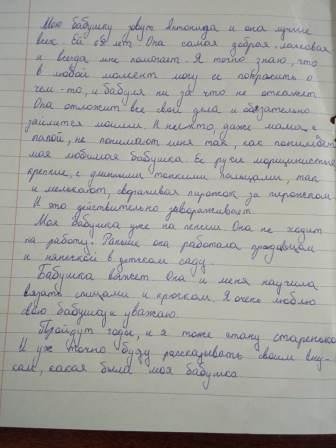 Мою бабушку зовут Антонида и она лучше
всех. Ей 68 лет. Она самая добрая, ласковая
и всегда мне помогает. Я точно знаю, что
в любой момент могу её попросить о
чём-то, и бабуля ни за что не откажет
Она отложит все свои дела и обязательно
займется моими. И никто, даже мама с
папой, не понимают меня так, как понимает
моя любимая бабушка. Её руки морщинистые
крепкие, с длинными тонкими пальцами, так
и мелькают, сворачивая пирожок за пирожком.
И это действительно завораживает.
Моя бабушка уже на пенсии. Она не ходит
на работу. Раньше она работала продавцом
и нянечкой в детском саду.
Бабушка вяжет. Она и меня научила
вязать спицами и крючком. Я очень люблю
свою бабушку и уважаю.
Пройдут годы, и я тоже стану старенькой
И уже точно буду рассказывать своим вну-
кам, какая была моя бабушка